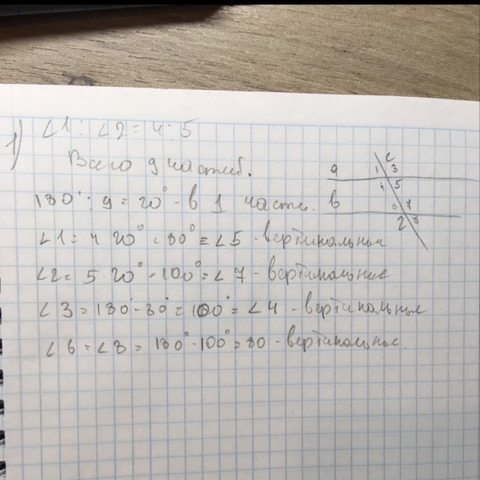 1) ∠1 : ∠2 = 4 : 5
Всего 9 частей.
180° : 9 = 20° - в 1 части.
∠1 = 4 · 20° = 80° = ∠5 - вертикальные
∠2 = 5 · 20° = 100° = ∠7 - вертикальные
∠3 = 180° - 80° = 100° = ∠4 - вертикальные
∠6 = ∠8 = 180° - 100° = 80 - вертикальные.
c
1 3
а
4 5
в
6 7
2 8